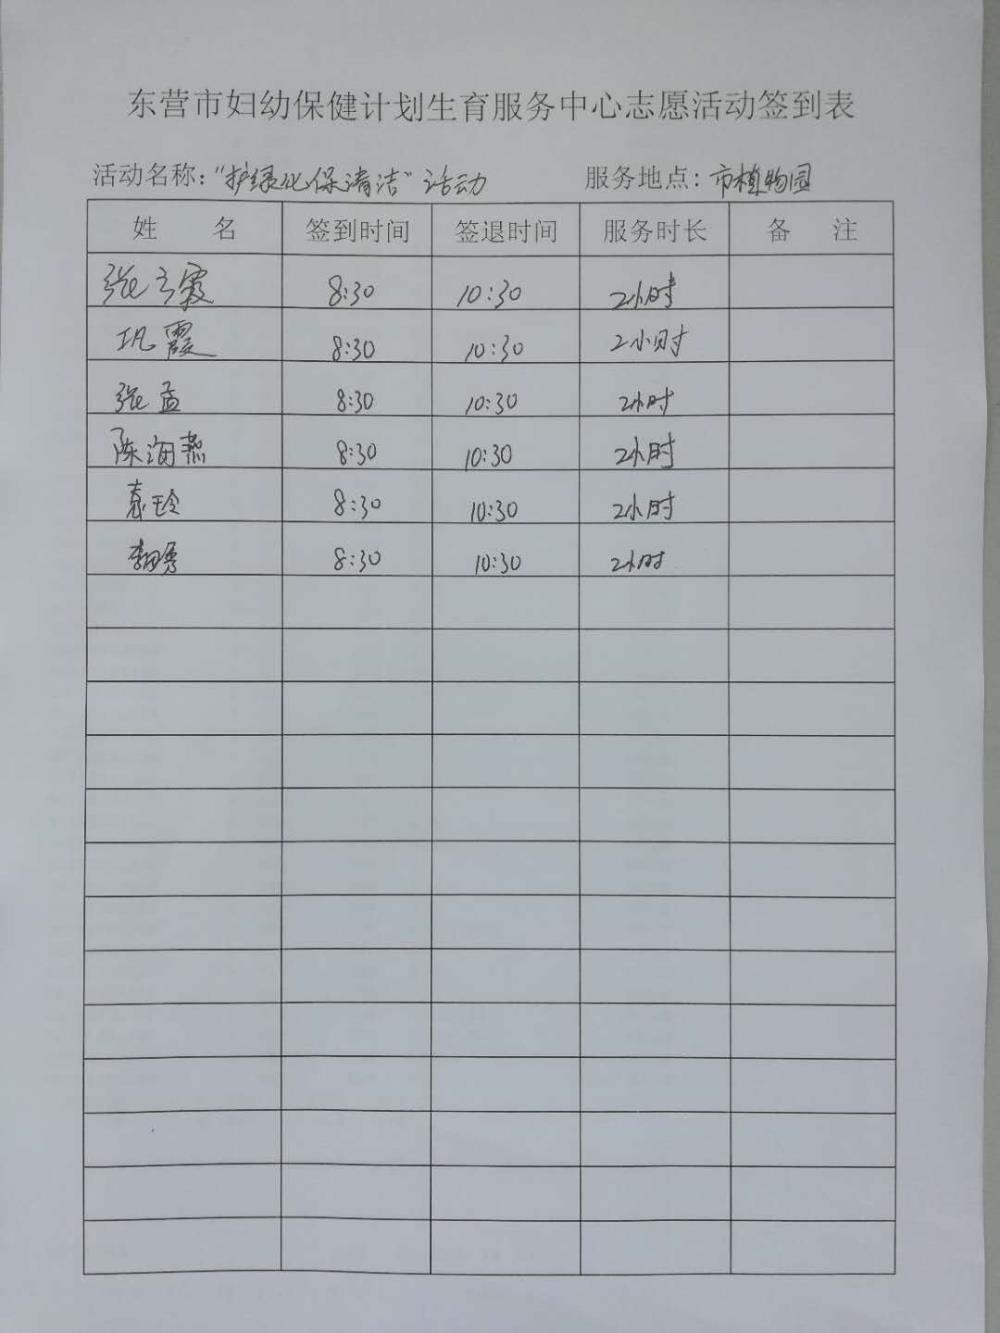 东营市妇幼保健计划生育服务中心志愿活动签到表
活动名称：“护绿化保清洁”活动 服务地点：市植物园
姓 名 签到时间 签退时间 服务时长 备 注
张云霞 8:30 10:30 2小时
巩霞 8:30 10:30 2小时
张孟 8:30 10:30 2小时
陈海燕 8:30 10:30 2小时
袁玲 8:30 10:30 2小时
8:30 10:30 2小时